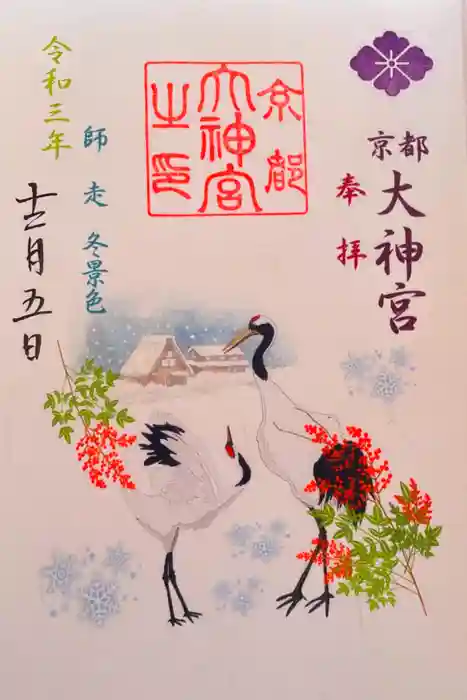 京都
大神宮
奉拝
京都
大神宮
之印
令和三年
師走 冬景色
十二月五日